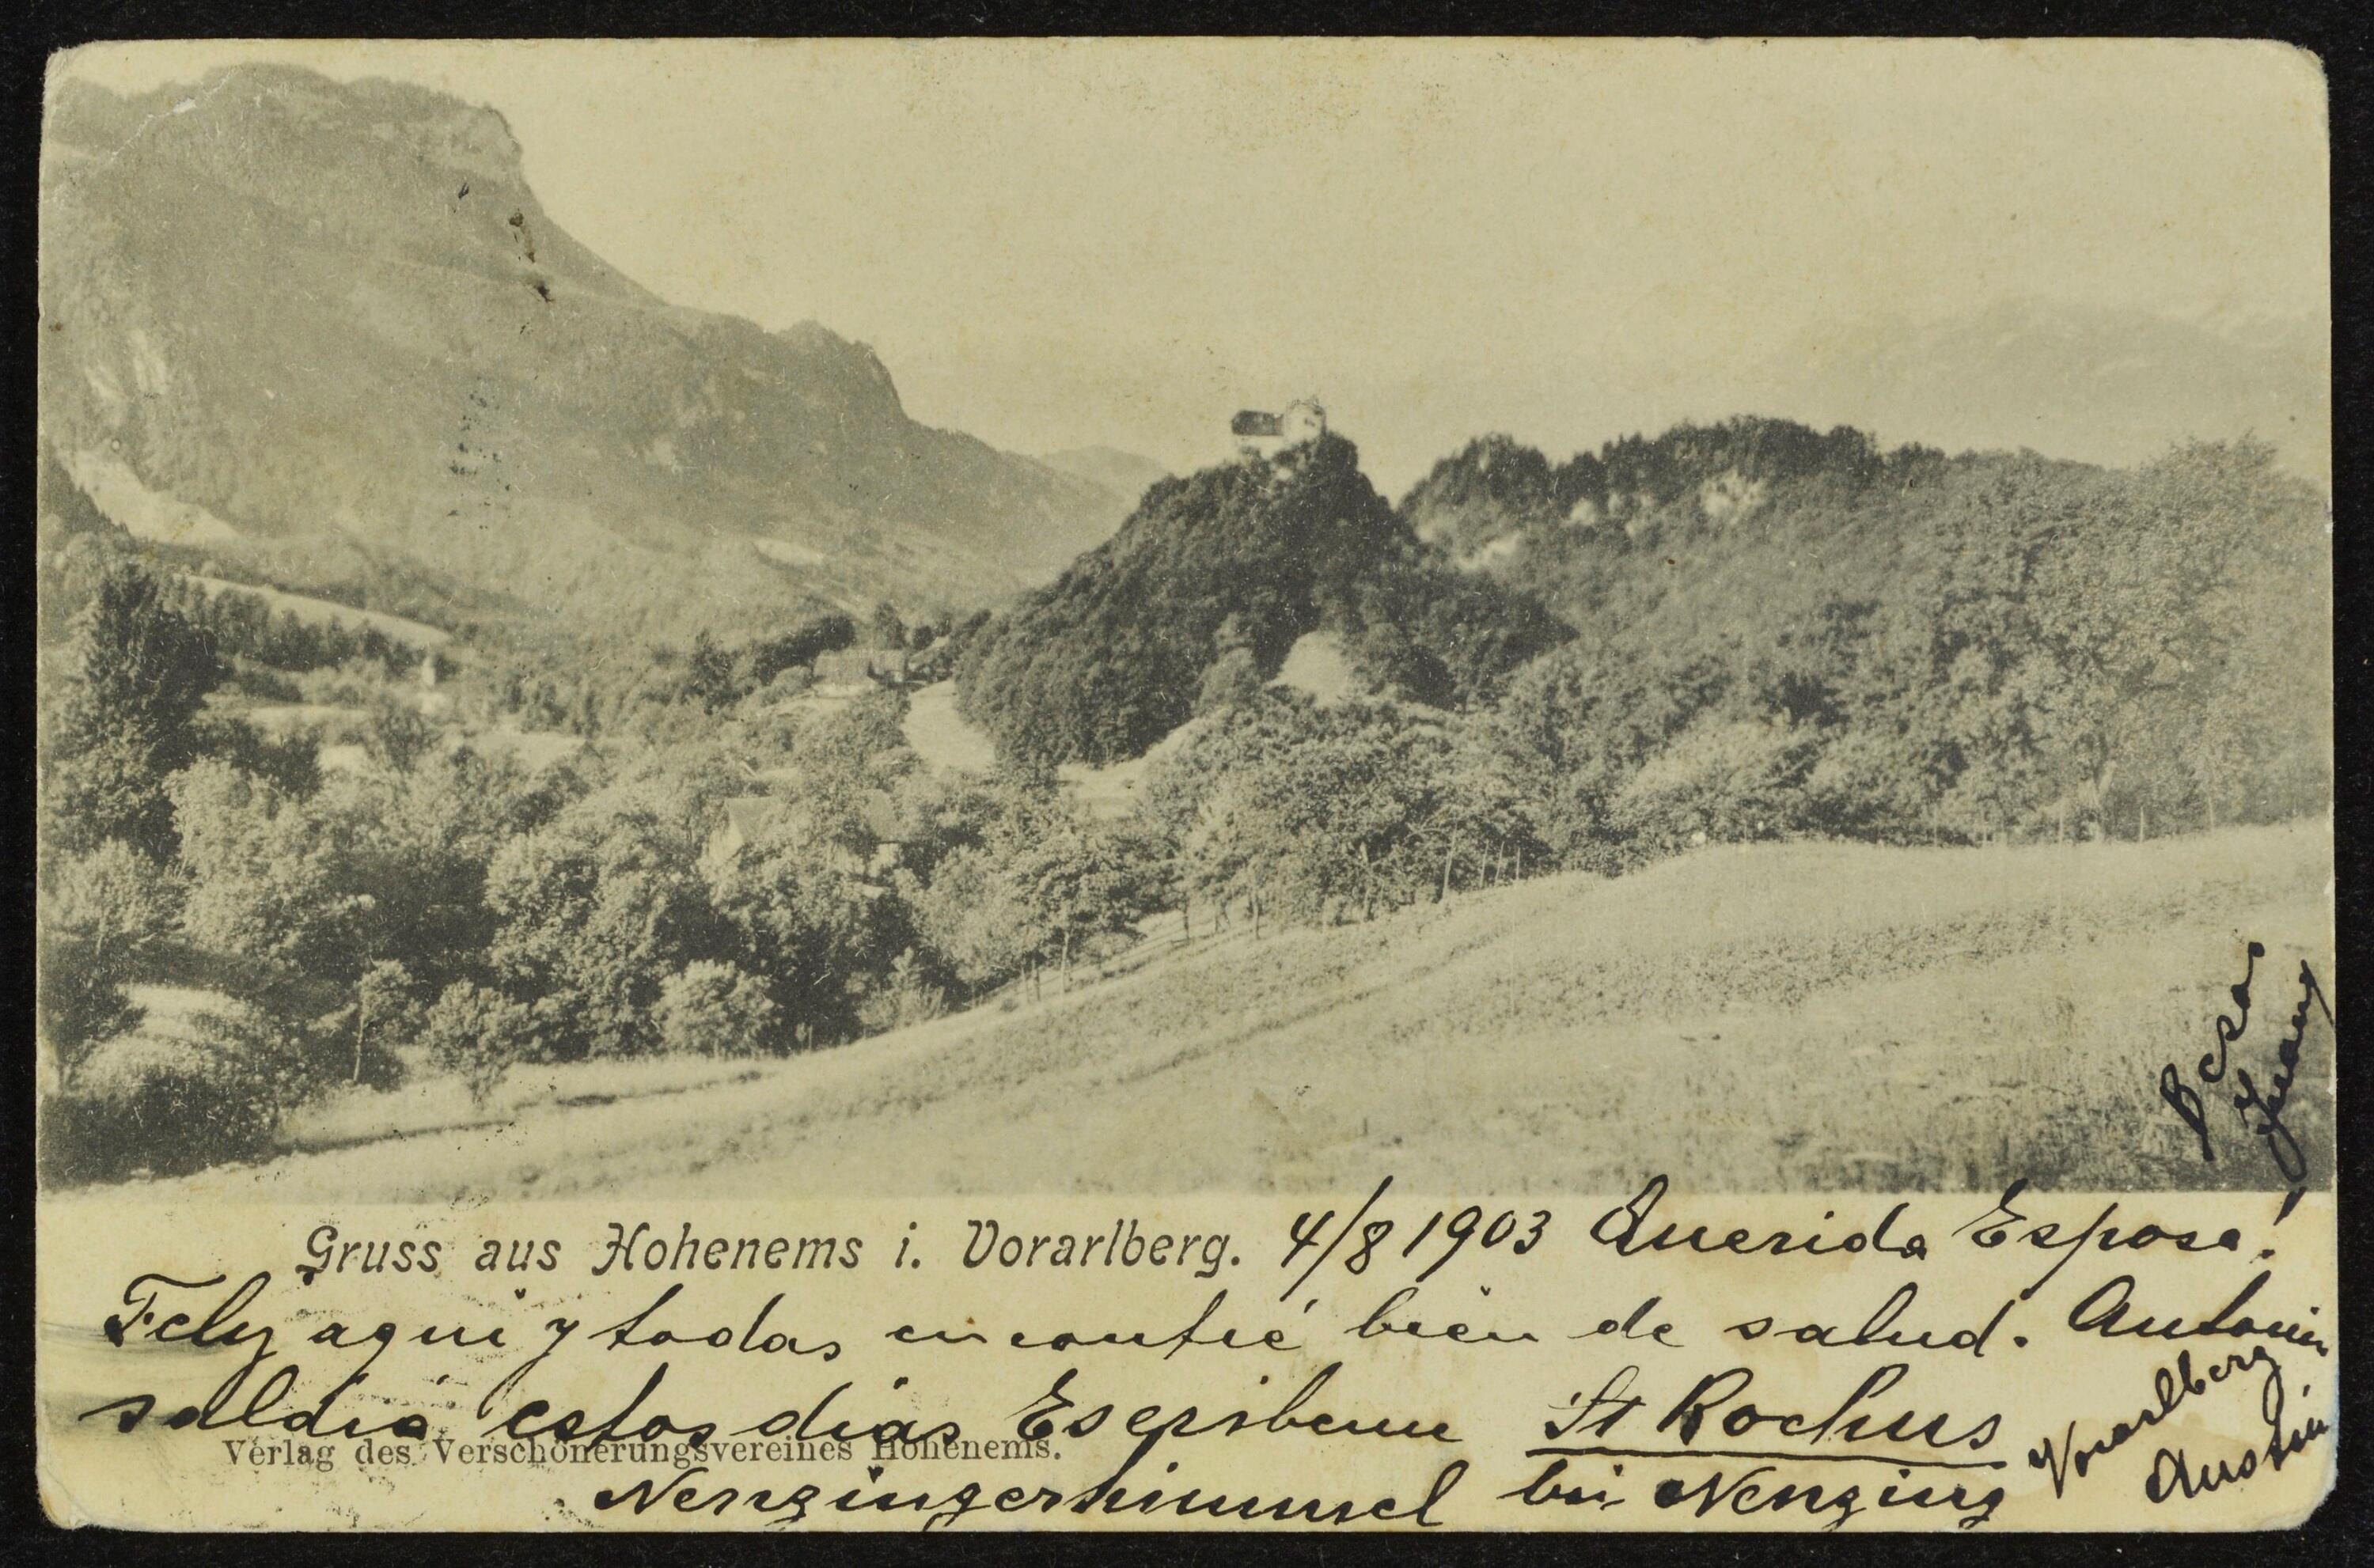 Gruss aus Hohenems i. Vorarlberg. 4/8 1903 Querida Esposa!
Feliz aqui y todas encontré bien de salud. Antonin
saldrá estos dias Escribeme St Rochus
Verlag des Verschönerungsvereines Hohenems.
Nenzingerhimmel bei Nenzing
Vorarlberg
Austria
Besos
Juan